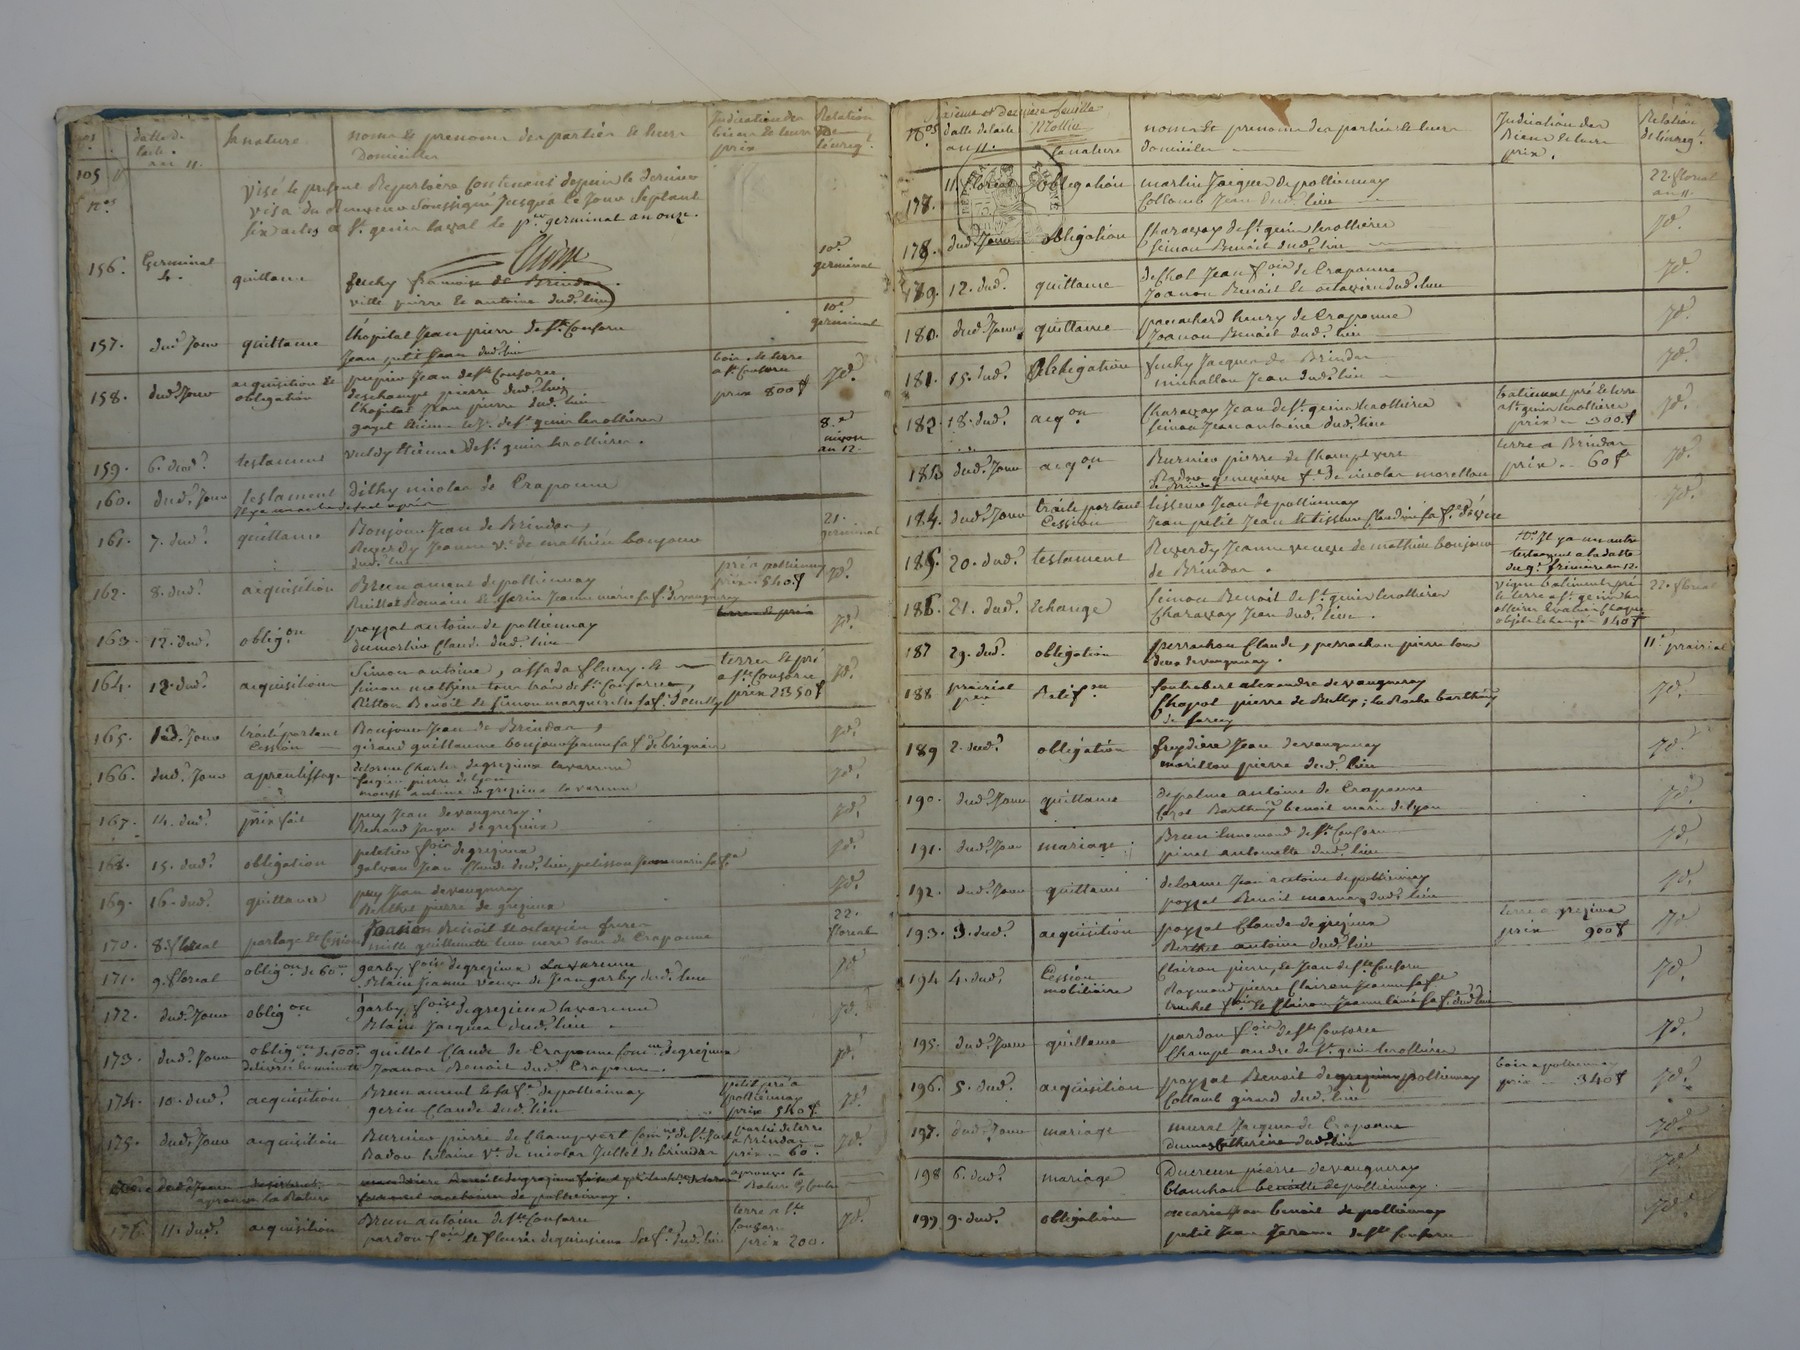 nos
datte de
l'acte
an 11.
Sa nature
noms et prenoms des parties et leurs
domiciles
Indication des
biens et leurs
prix
Relation
de
l'enreg.t
105
nos
visé le present Repertoire Contenant depuis le dernier
visa du Receveur Soussigné Jusqu'à ce Jour Septante
six actes a St. genis laval le p.er germinal an onze.
156.
Germinal
4.
quittance
fuchy françoise de Brindas.
ville pierre et antoine dud.t lieu
10.e
germinal
157.
dud. Jour
quittance
L'hopital Jean pierre de Ste Consorce
Jean petit Jean dud.t lieu
10.e
germinal
158.
dud. Jour
acquisition et
obligation
pupier Jean de Ste Consorce.
deschamps pierre dud. lieu
l'hopital Jean pierre dud. lieu
gayet de St. genis les ollieres
bois et terre
a Ste Consorce
prix 800 f
Id.
159.
6. dud.t
testament
Etienne de St. genis les ollieres.
8.e
nivose
an 12.
160.
dud. Jour
testament
nicolas de Craponne
161.
7. dud.t
quittance
Bonjour Jean de Brindas,
Reverdy Jeanne v.e de mathieu bonjour
dud. lieu
21.
germinal
162.
8. dud.t
acquisition
Brun ament de pollionnay
Ruillat Romain et Gerin Jeanne marie sa f. de vaugneray
pré a pollionnay
prix 540 f
Id.
163.
12. dud.t
oblig.on
poyzat antoine de pollionnay
dumortier Claude dud. lieu
Id.
164.
12. dud.t
acquisition
Simon antoine, fleury et
Simon mathieu tous trois de Ste Consorce,
Ritton Benoit et Simon marguerite sa f.
terres et pré
a Ste Consorce
prix 2350 f
Id.
165.
13. Jour
traité portant
Cession
Bonjour Jean de Brindas
girard guillaume bonjour Jeanne sa f. de brignais
Id.
166.
dud. Jour
aprentissage
delorme Charles de grezieux la varenne
pierre de lyon
antoine de grezieux la varenne
Id.
167.
14. dud.t
prix fait
puy Jean de vaugneray.
Renaud Jacques de grezieux
Id.
168.
15. dud.t
obligation
peletier f.ois de grezieux
galvan Jean Claude dud. lieu, pelisson Jeanne marie sa f.e
Id.
169.
16. dud.t
quittance
puy Jean de vaugneray
Berthet pierre de grezieux
Id.
170.
8. floreal
partage et Cession
Joanon Benoit et octavien freres
guillemette leur mere tous de Craponne
22.
floreal
171.
9. floreal
oblig.on de 60 f
garby f.ois de grezieux la varenne
Blain Jeanne veuve de Jean garby dud. lieu
Id.
172.
dud. Jour
oblig.on
garby f.ois de grezieux la varenne
Blain Jacques dud. lieu
Id.
173.
dud. Jour
oblig.on de 100 f
delivrée en minute
guillot Claude de Craponne Com.ne de grezieux
Joanon Benoit dud. Craponne.
Id.
174.
10. dud.t
acquisition
Brun ament et sa f.e de pollionnay
gerin Claude dud. lieu
petit pré a
pollionnay
prix 540 f.
Id.
175.
dud. Jour
acquisition
Burnier pierre de Champvert
Radou helaine v.e de nicolas Juillet de brindas
partie de terre
a Brindas
prix 60 f
Id.
dud. Jour
aprouvé la Rature
de pollionnay.
aprouvé la
Rature
176.
11. dud.t
acquisition
Brun antoine de Ste Consorce
pardon f.ois et fleurie sa f.e dud. lieu
terre a Ste
Consorce
prix 200.
Id.
Sixieme et Derniere feuille
Mollin
nos
datte de l'acte
an 11.
sa nature
noms et prenoms des parties et leurs
domiciles
Indication des
Biens et leurs
prix.
Relation
de l'enreg.t
177.
11 floreal
obligation
martin Jacques de pollionnay
Collomb Jean dud. lieu
22. floreal
an 11.
178.
dud. Jour
obligation
Charavay de St. genis les ollieres
Simon Benoit dud. lieu
Id.
179.
12. dud.
quittance
dechol Jean f.ois de Craponne
Joanon Benoit et octavien dud. lieu
Id.
180.
dud. Jour
quittance
panachard henry de Craponne
Joanon Benoit dud. lieu
Id.
181.
15. dud.
obligation
fuchy Jacques de Brindas
michallon Jean dud. lieu
Id.
182.
18. dud.
acq.on
Charavay Jean de St. genis les ollieres
Simon Jean antoine dud. lieu
batiment pré et terre
a St. genis les ollieres
prix 300 f
Id.
183
dud. Jour
acq.on
Burnier pierre de Champvert
Radou genevieve v.e de nicolas morellon
de Brindas
terre a Brindas
prix 60 f
Id.
184.
dud. Jour
traité portant
Cession
tisseur Jean de pollionnay
Jean petit Jean et tisseur Claudine sa f.
Id.
185.
20. dud.
testament
Reverdy Jeanne veuve de mathieu bonjour
de Brindas.
Il y a un autre
testament a la datte
du 9. frimaire an 12.
186.
21. dud.
Echange
Simon Benoit de St. genis les ollieres
Charavay Jean dud. lieu.
vigne batiment pré
et terre a St. genis les
ollieres
140 f
22. floreal
187
29. dud.
obligation
perrachon Claude, perrachon pierre tous
deux de vaugneray.
11. prairial
188
prairial
p.er
Ratif.on
fontrobert alexandre de vaugneray
Chapot pierre de Bully; la Roche barthelmy
de Sarcey
Id.
189
2. dud.
obligation
freydiere Jean de vaugneray
marillon pierre dud. lieu
Id.
190.
dud. Jour
quittance
depalme antoine de Craponne
Barthmy benoit marin de lyon
Id.
191.
dud. Jour
mariage.
Brun Ennemond de Ste Consorce
pinet antoinette dud. lieu
Id.
192.
dud. Jour
quittance
delorme Jean antoine de pollionnay
poyzat Benoit dud. lieu
Id.
193.
3. dud.
acquisition
poyzat Claude de grezieux
Berthet antoine dud. lieu
terre a grezieux
prix 900 f
Id
194
4. dud.
Cession
mobiliaire
Clairon pierre, et Jean de Ste Consorce
Raymond pierre Clairon Jeanne sa f.e
truchet f.ois et Clairon Jeanne sa f. dud. lieu
Id.
195.
dud. Jour
quittance
pardon f.ois de Ste Consorce
Champt andre de St. genis les ollieres
Id.
196.
5. dud.
acquisition
poyzat Benoit de pollionnay
Collomb girard dud. lieu
bois a pollionnay
prix 340 f
Id.
197.
dud. Jour
mariage
murat Jacques de Craponne
dumas Catherine dud. lieu
Id.
198
6. dud.
mariage
Ducreux pierre de vaugneray
blanchon benoite de pollionnay.
Id.
199
9. dud.
obligation
benoit de pollionnay
petit Jean Jerome de Ste Consorce
Id.